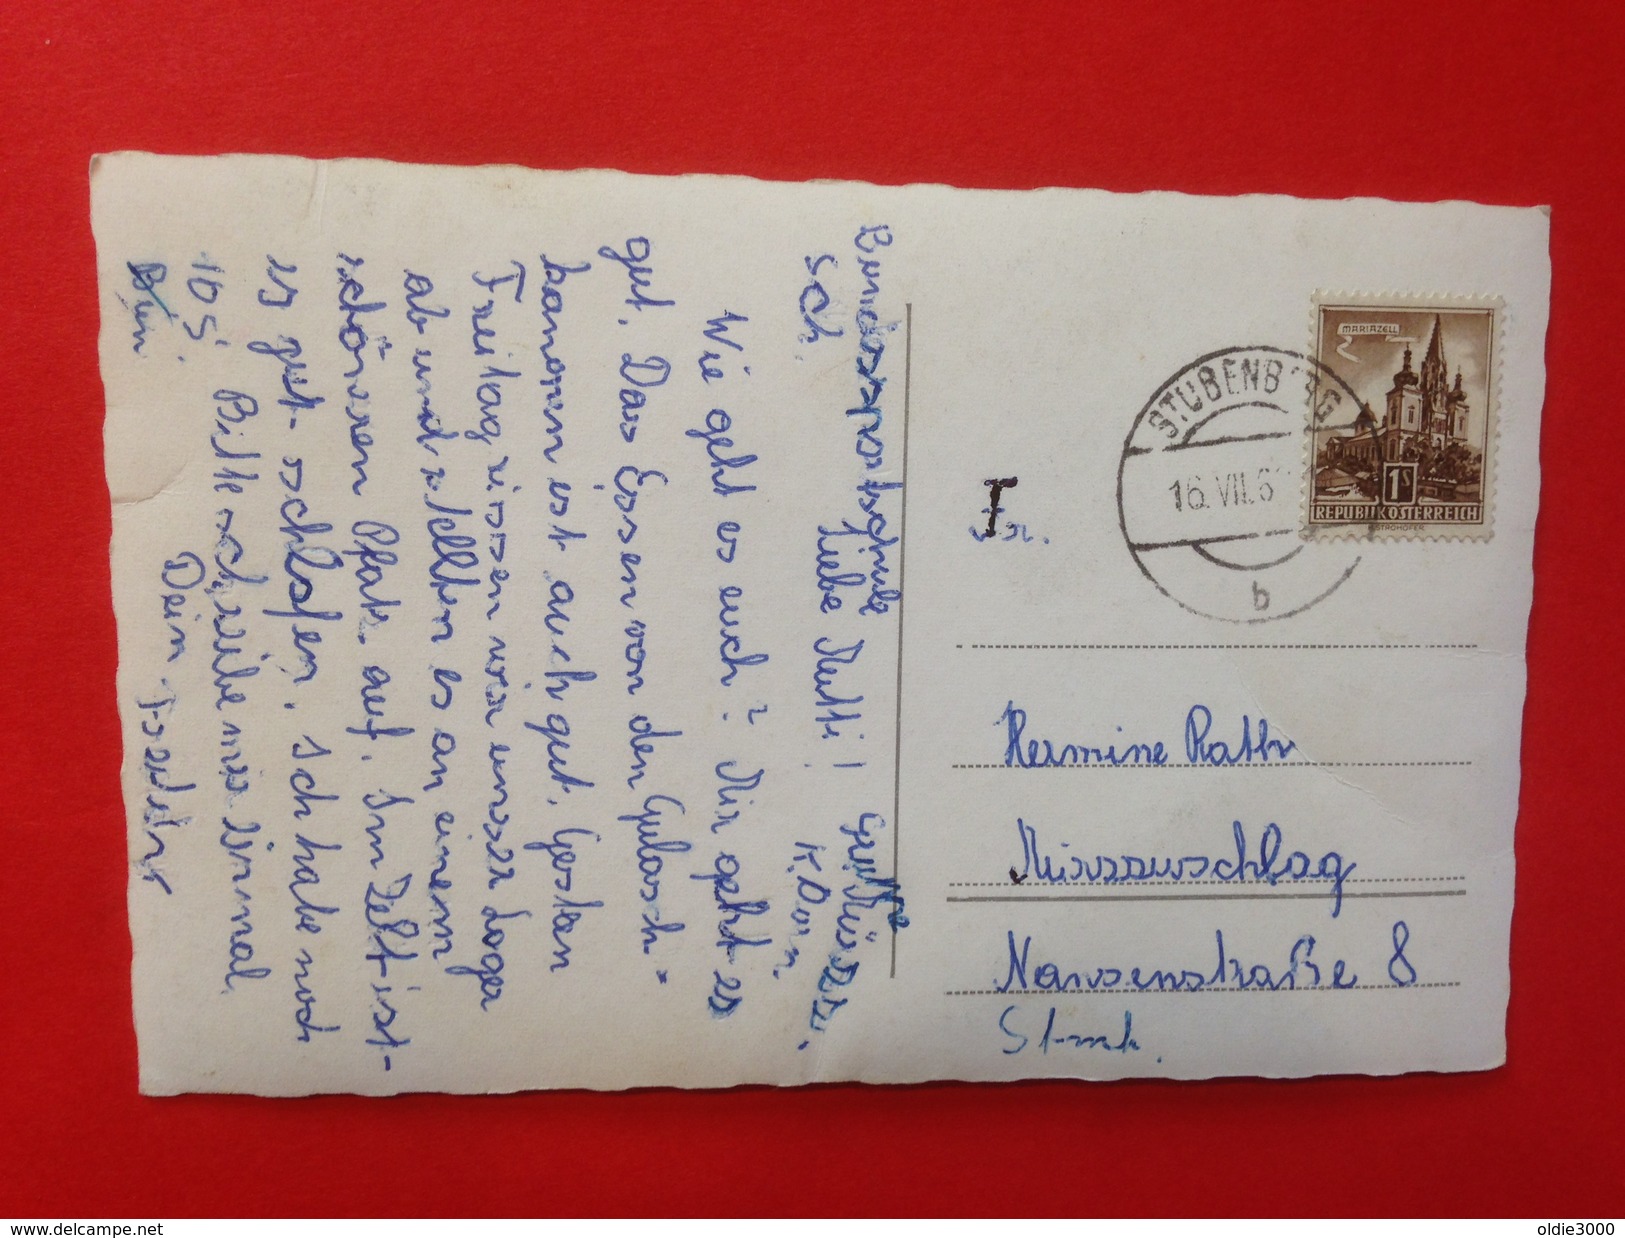 Bundessportschule
Liebe Mutti!
Wie geht es euch? Mir geht es
gut. Das Essen von den Gulasch=
kanonen ist auch gut. Gestan
Freitag rissen wir unser Lager
ab und stellten es an einem
schöneren Platz auf. Im Zelt ist-
es gut schlafen. Ich habe noch
10 S. Bitte schreibe mir einmal.
Dein
MARIAZELL
1S
REPUBLIK ÖSTERREICH
STROHOFER
STUBENBERG
16. VII. 6
b
T
Fr.
Hermine Rath
Mürzzuschlag
Nansenstraße 8
Stmk.
www.delcampe.net
oldie3000